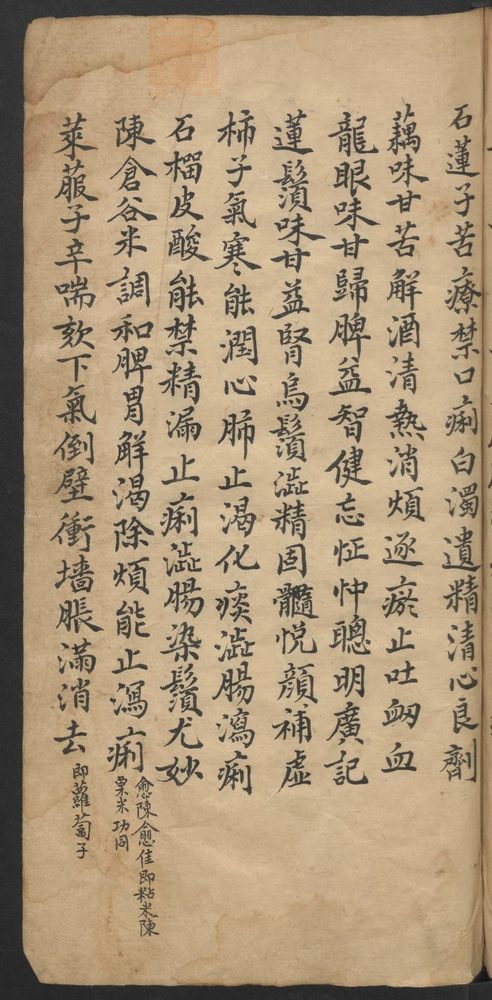 石蓮子苦療禁口痢白濁遺精清心良劑
藕味甘苦解酒清熱消煩逐瘀止吐衂血
龍眼味甘歸脾益智健忘怔忡聰明廣記
蓮鬚味甘益腎烏鬚澁精固髓悅顏補虛
柿子氣寒能潤心肺止渴化痰澁腸瀉痢
石榴皮酸能禁精漏止痢澁腸染鬚尤妙
陳倉谷米調和脾胃解渴除煩能止瀉痢
愈陳愈佳即粘米陳
粟米功同
萊菔子辛喘欬下氣倒壁衝墻脹滿消去
即蘿蔔子